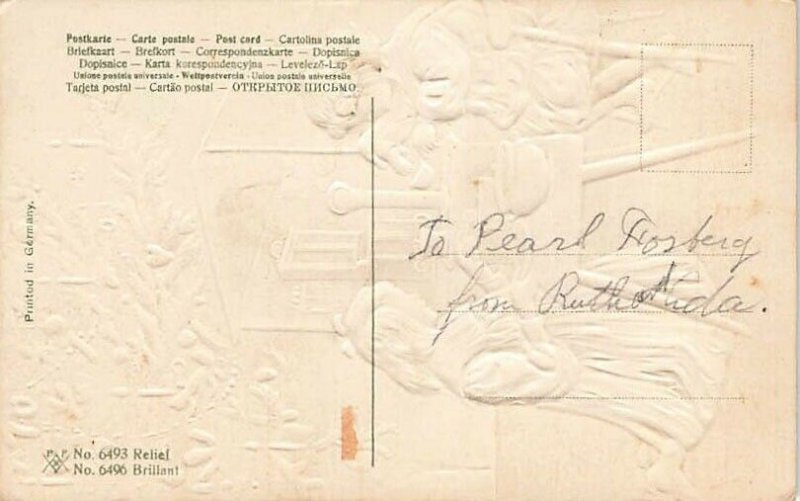 Postkarte — Carte postale — Post card — Cartolina postale
Briefkaart — Brefkort — Correspondenzkarte — Dopisnica
Dopisnice — Karta korespondencyjna — Levelező-Lap
Unione postale universale - Weltpostverein - Union postale universelle
Tarjeta postal — Cartão postal — ОТКРЫТОЕ ПИСЬМО.
Printed in Germany.
To Pearl Forsberg
from Ruth
P. P. No. 6493 Relief
No. 6496 Brillant